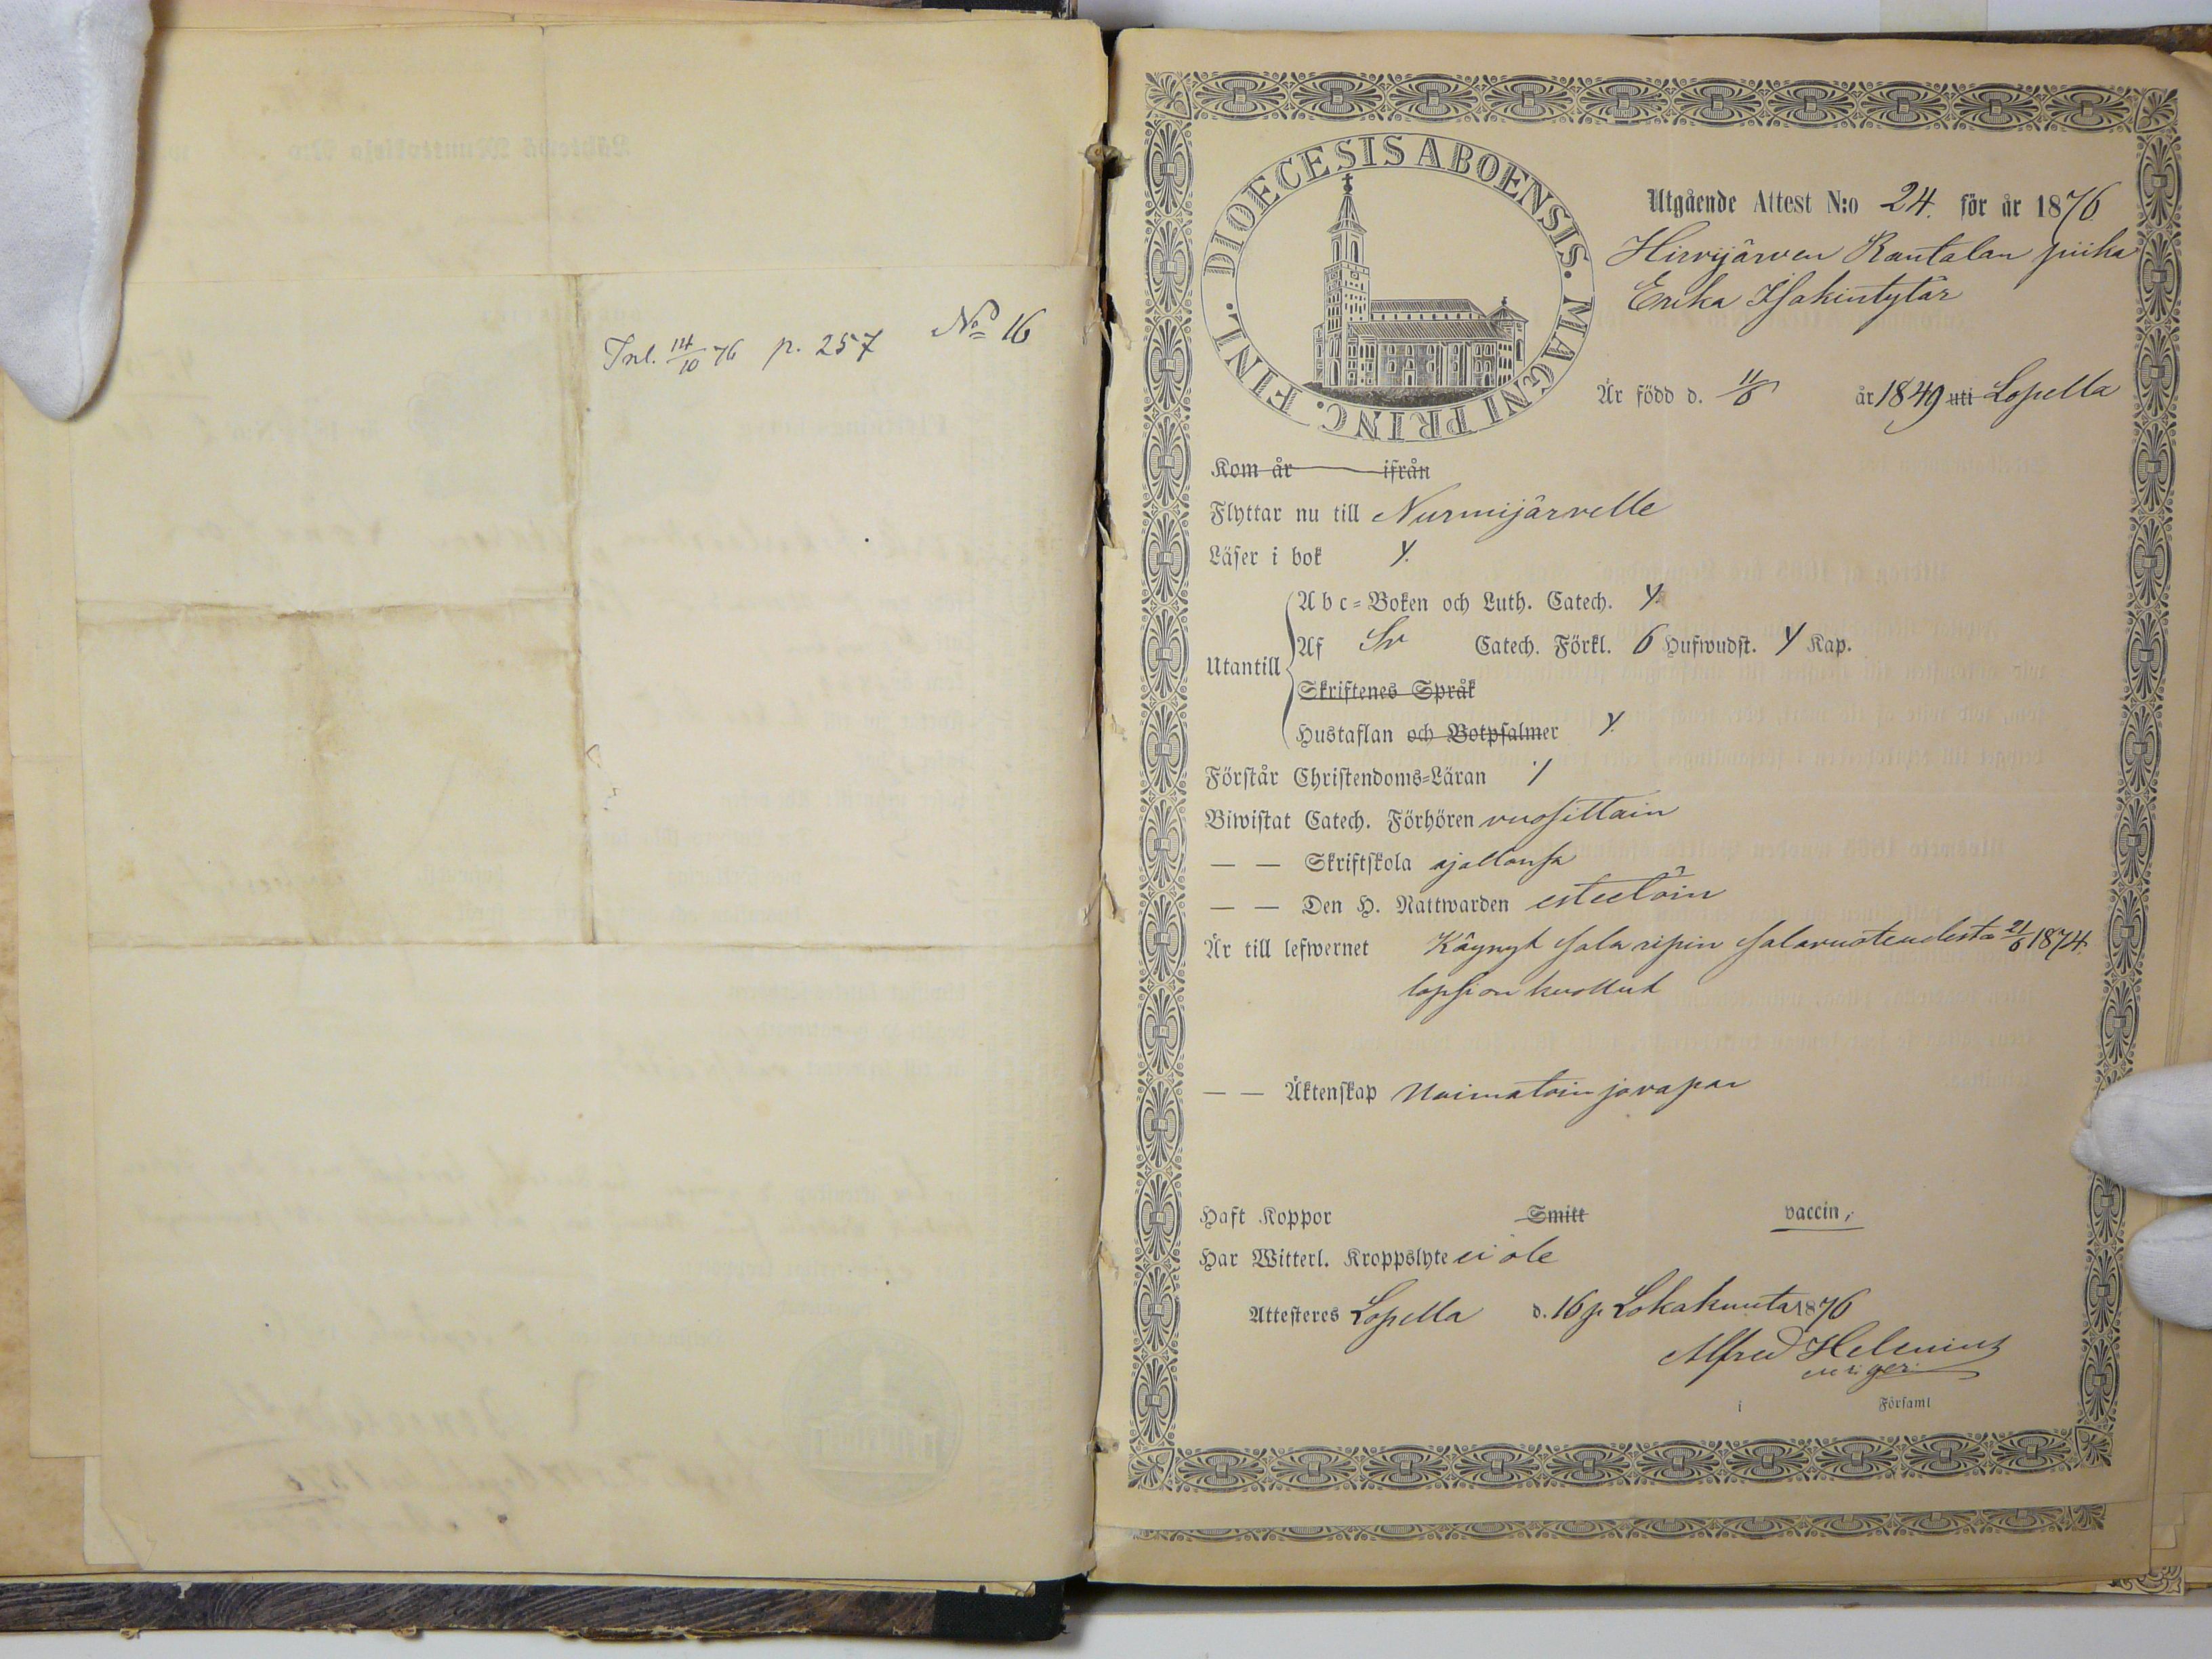 Inl. 14/10 76 p. 257 No 16
DIOECESIS ABOENSIS. MAGNI PRINC. FINL.
Utgående Attest N:o 24. för år 1876
Hirvijärven Rantalan piika
Erika Isakintytär
Är född d. 11/6 år 1849 uti Lopella
Kom år ifrån
Flyttar nu till Nurmijärvelle
Läser i bok Y.
Abc-Boken och Luth. Catech. Y.
Utantill
Af Sv Catech. Förkl. 6 Hufwudst. Y Kap.
Skriftenes Språk
Hustaflan och Botpsalmer Y.
Förstår Christendoms-Läran
Biwistat Catech. Förhören vuosittain
— — Skriftskola ajallansa
— — Den H. Nattwarden esteetöin
Är till lefwernet Käynyt sala ripin salavuoteudesta 21/6 1874.
lapsi on kuollut
— — Äktenskap Naimatoin ja vapaa
Haft Koppor Smitt vaccin,
Har Witterl. Kroppslyte ei ole
Attesteres Lopella d. 16 p. Lokakuuta 1876
Alfred Helenius
i Församl